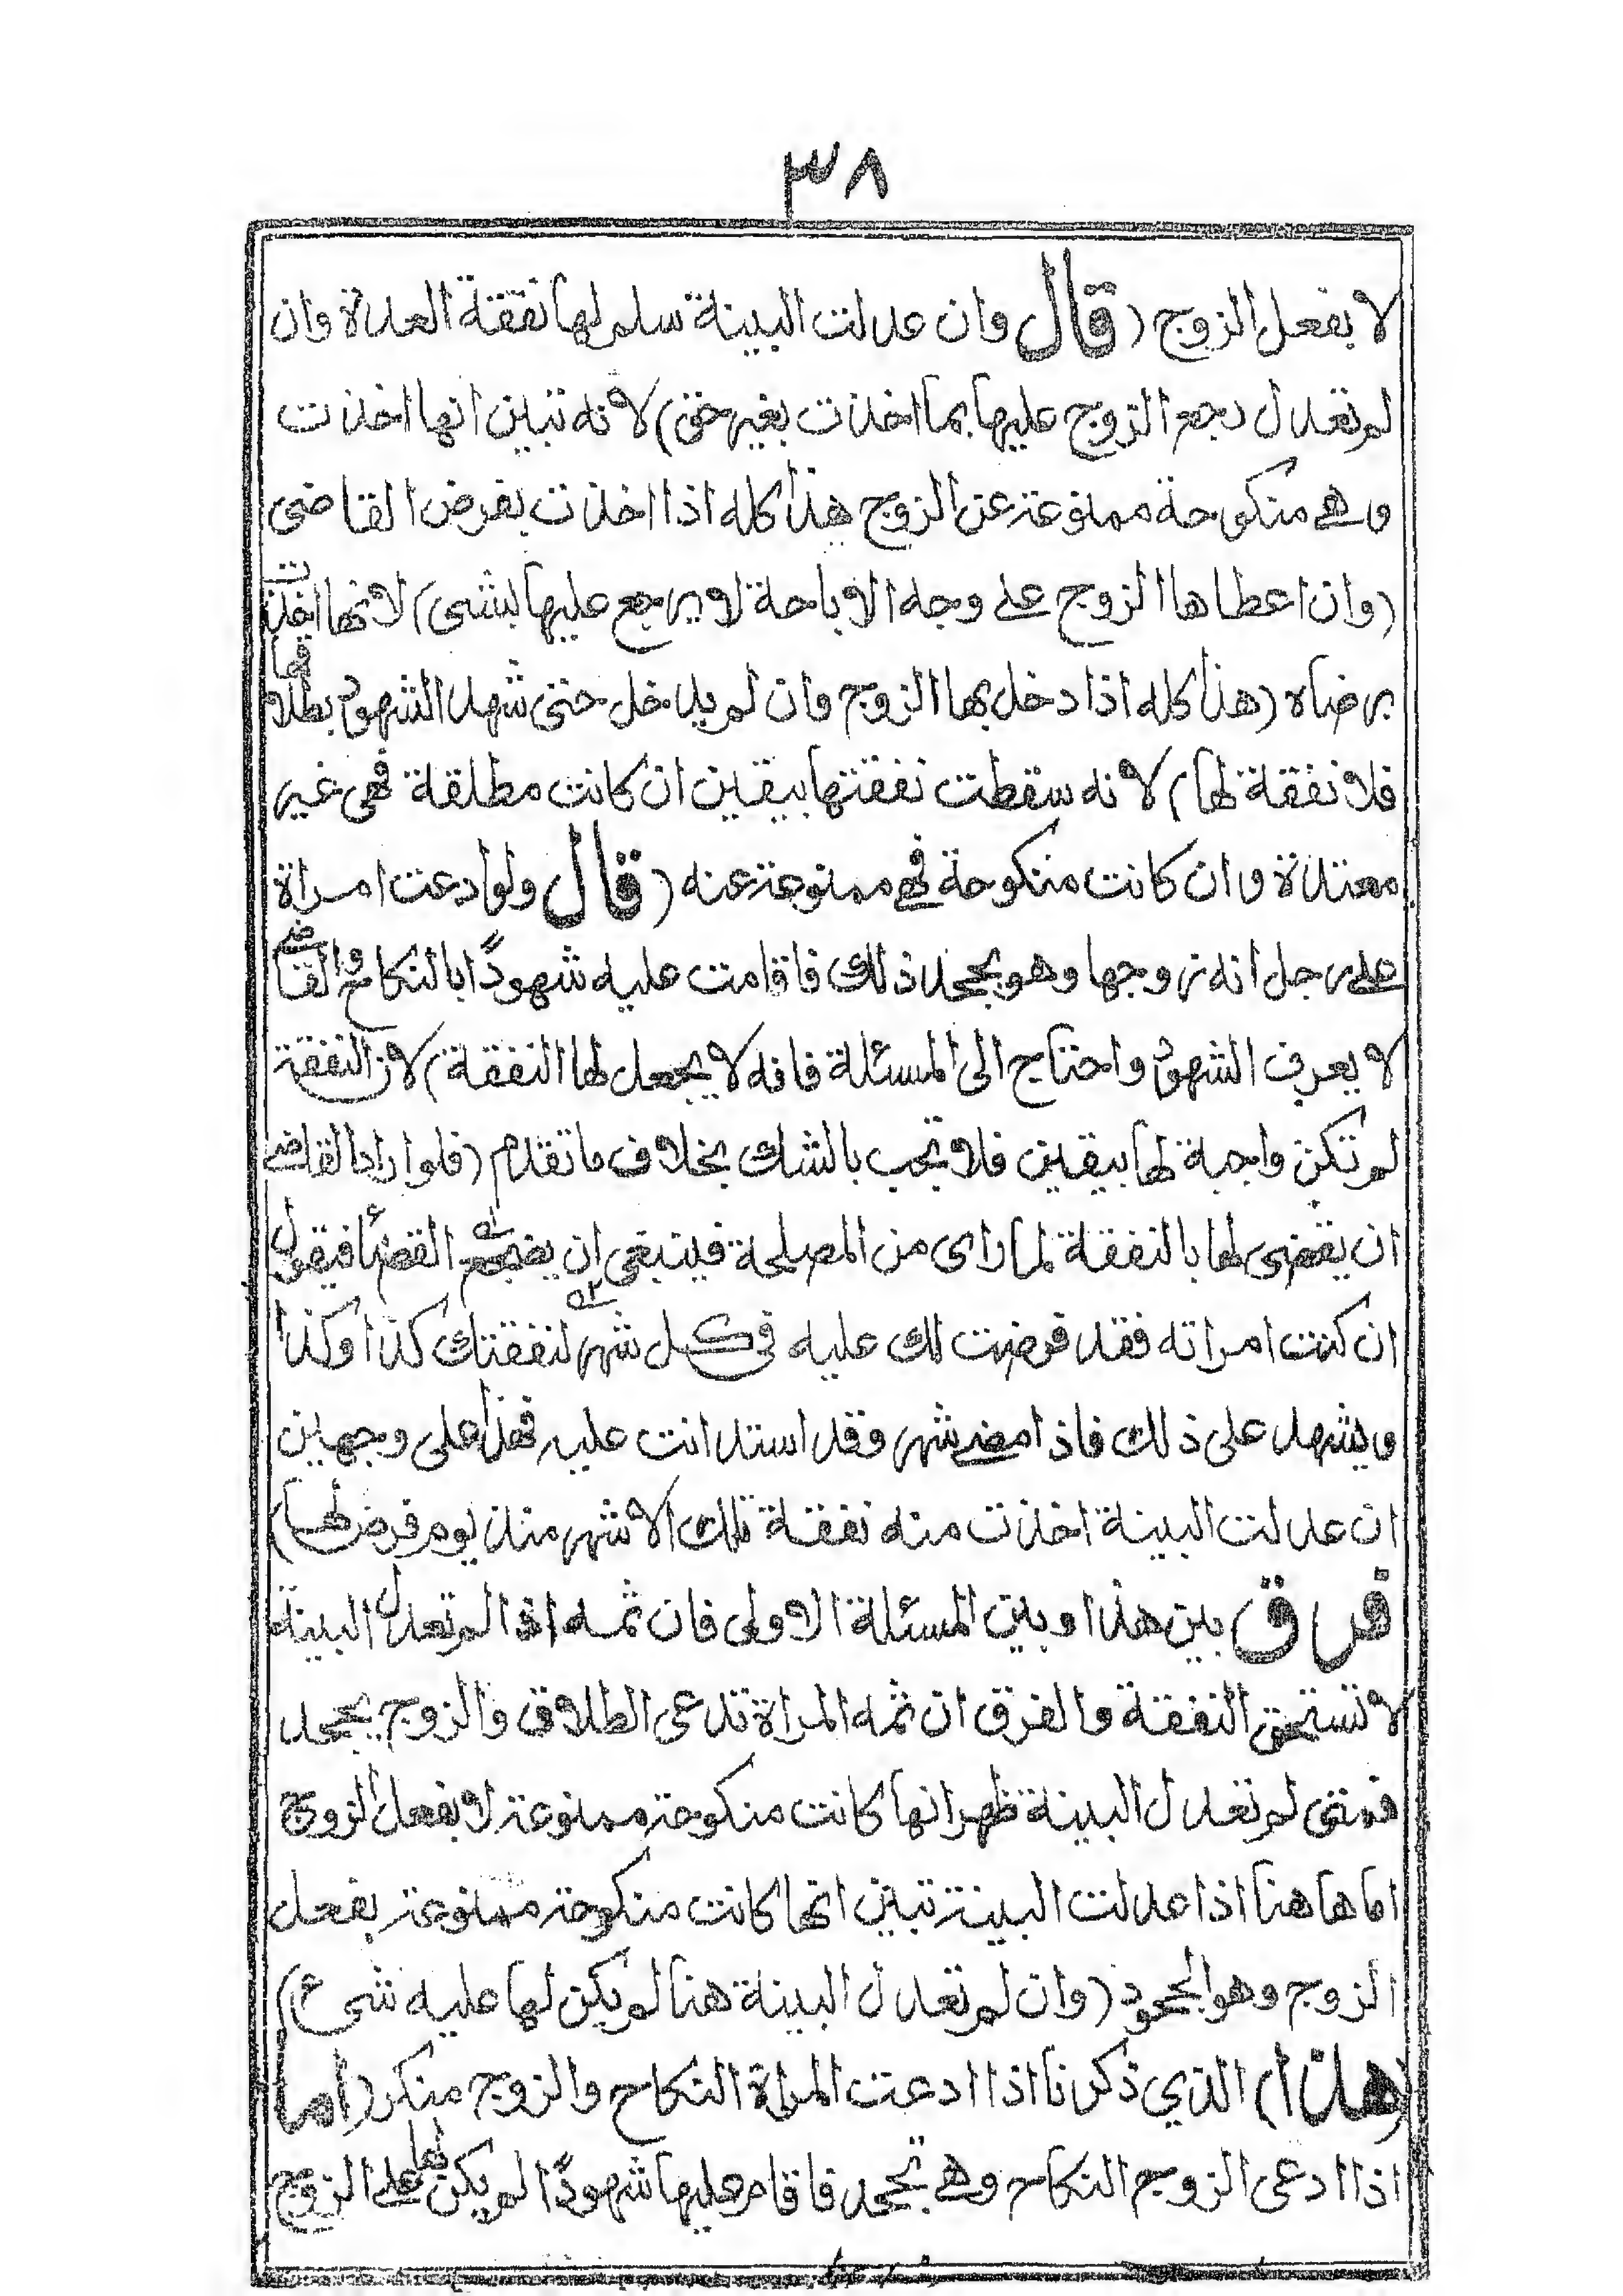 ٣٨
لا بفعل الزوج (قال وان عدلت البينة سلم لها نفقة العدة وان
لم تعدل رجع الزوج عليها بما اخذت بغير حق) لانه تبين انها اخذت
وهي منكوحة ممنوعة عن الزوج هذا كله اذا اخذت بفرض القاضى
(وان اعطاها الزوج على وجه الاباحة لا يرجع عليها بشىء) لانها اخذت
برضاه (هذا كله اذا دخل بها الزوج وان لم يدخل حتى شهد الشهود بطلاقها
فلا نفقة لها) لانه سقطت نفقتها بيقين ان كانت مطلقة فهى غير
معتدة وان كانت منكوحة فهي ممنوعة عنه (قال ولو ادعت امراة
على رجل انه تزوجها وهو يجحد ذلك فاقامت عليه شهودًا بالنكاح والقاضي
لا يعرف الشهود واحتاج الى المسئلة فانه لا يجعل لها النفقة) لان النفقة
لم تكن واجبة لها بيقين فلا تجب بالشك بخلاف ما تقدم (فلو اراد القاضي
ان يقضى لها بالنفقة لما راى من المصلحة فينبغى ان القضا فيقول
ان كنت امراته فقد فرضت لك عليه في كل شهر لنفقتك كذا وكذا
ويشهد على ذلك فاذا مضى شهر وقد استدانت عليه فهذا على وجهين
ان عدلت البينة اخذت منه نفقة تلك الاشهر منذ يوم فرض لها)
فرق بين هذا وبين المسئلة الاولى فان ثمه اذا لم تعدل البينة
لا تستحق النفقة والفرق ان ثمه المراة تدعى الطلاق والزوج يجحد
فمتى لم تعدل البينة ظهر انها كانت منكوحة ممنوعة لا بفعل الزوج
اما هاهنا اذا عدلت البينة تبين انها كانت منكوحة ممنوعة بفعل
الزوج وهو الجحود (وان لم تعدل البينة هنا لم يكن لها عليه شىء)
(هذا) الذي ذكرنا اذا ادعت المراة النكاح والزوج منكر (اما)
اذا ادعى الزوج النكاح وهي تجحد فاقام عليها شهودًا لم يكن لها على الزوج